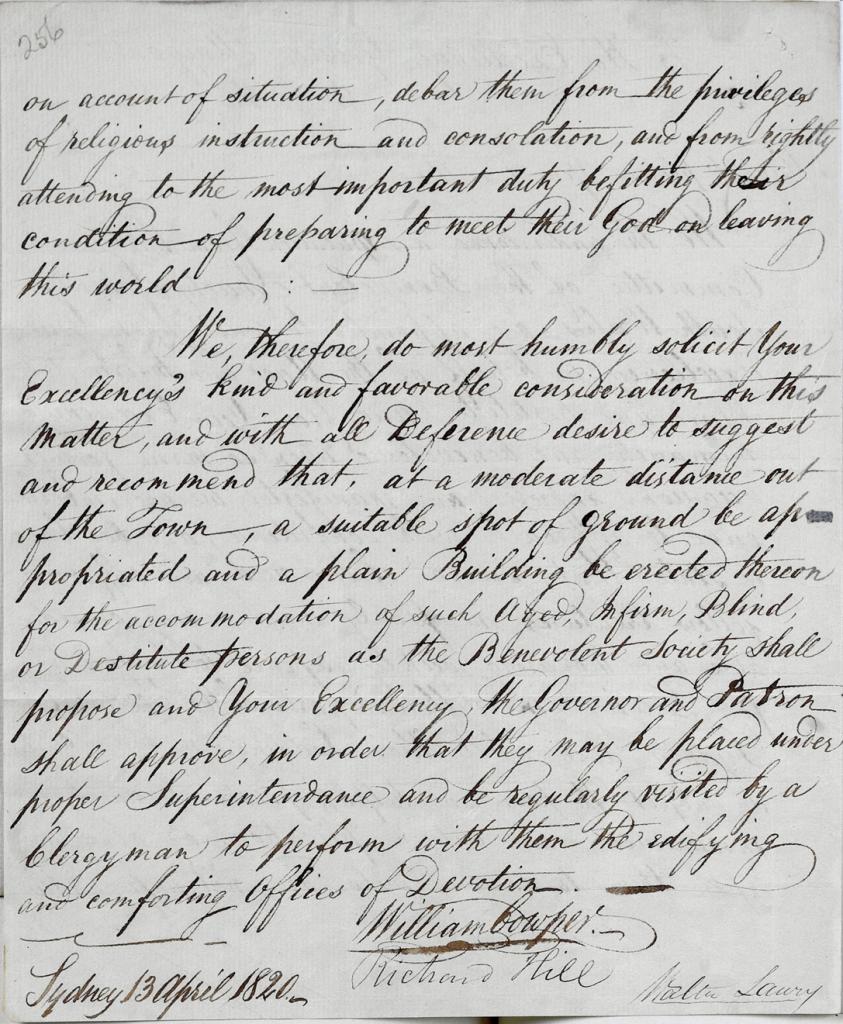 256
on account of situation, debar them from the privileges
of religious instruction and consolation, and from rightly
attending to the most important duty befitting their
condition of preparing to meet their God on leaving
this world : —
We, therefore, do most humbly solicit Your
Excellency's kind and favorable consideration on this
Matter, and with all Deference desire to suggest
and recommend that, at a moderate distance out
of the Town, a suitable spot of ground be ap-
propriated and a plain Building be erected thereon
for the accommodation of such Aged, Infirm, Blind,
or Destitute persons as the Benevolent Society shall
propose and Your Excellency, the Governor and Patron
shall approve, in order that they may be placed under
proper Superintendance and be regularly visited by a
Clergyman to perform with them the edifying
and comforting Offices of Devotion. —
William Cowper.
Richard Hill
Walter Lawry
Sydney 13 April 1820.